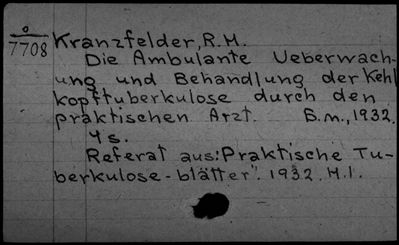 o
7708
Kranzfelder, R.M.
Die Ambulante Ueberwach-
ung und Behandlung der Kehl
kopftuberkulose durch den
praktischen Arzt. B.m., 1932.
4 s.
Referat aus: Praktische Tu-
berkulose-blätter". 1932. H.1.